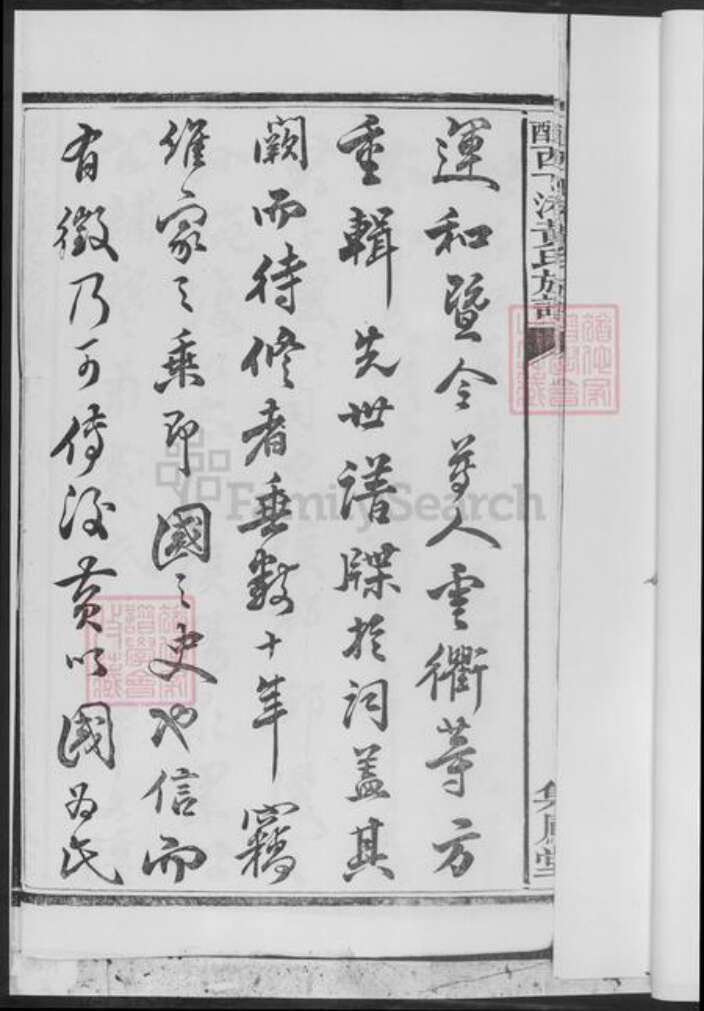 運和曁令尊人雲衢等方
重輯先世譜牒於祠蓋其
闕而待修者垂數十年竊
維家之乘即國之史也信而
有徵乃可傳後黄以國為氏
黄氏族譜
FamilySearch